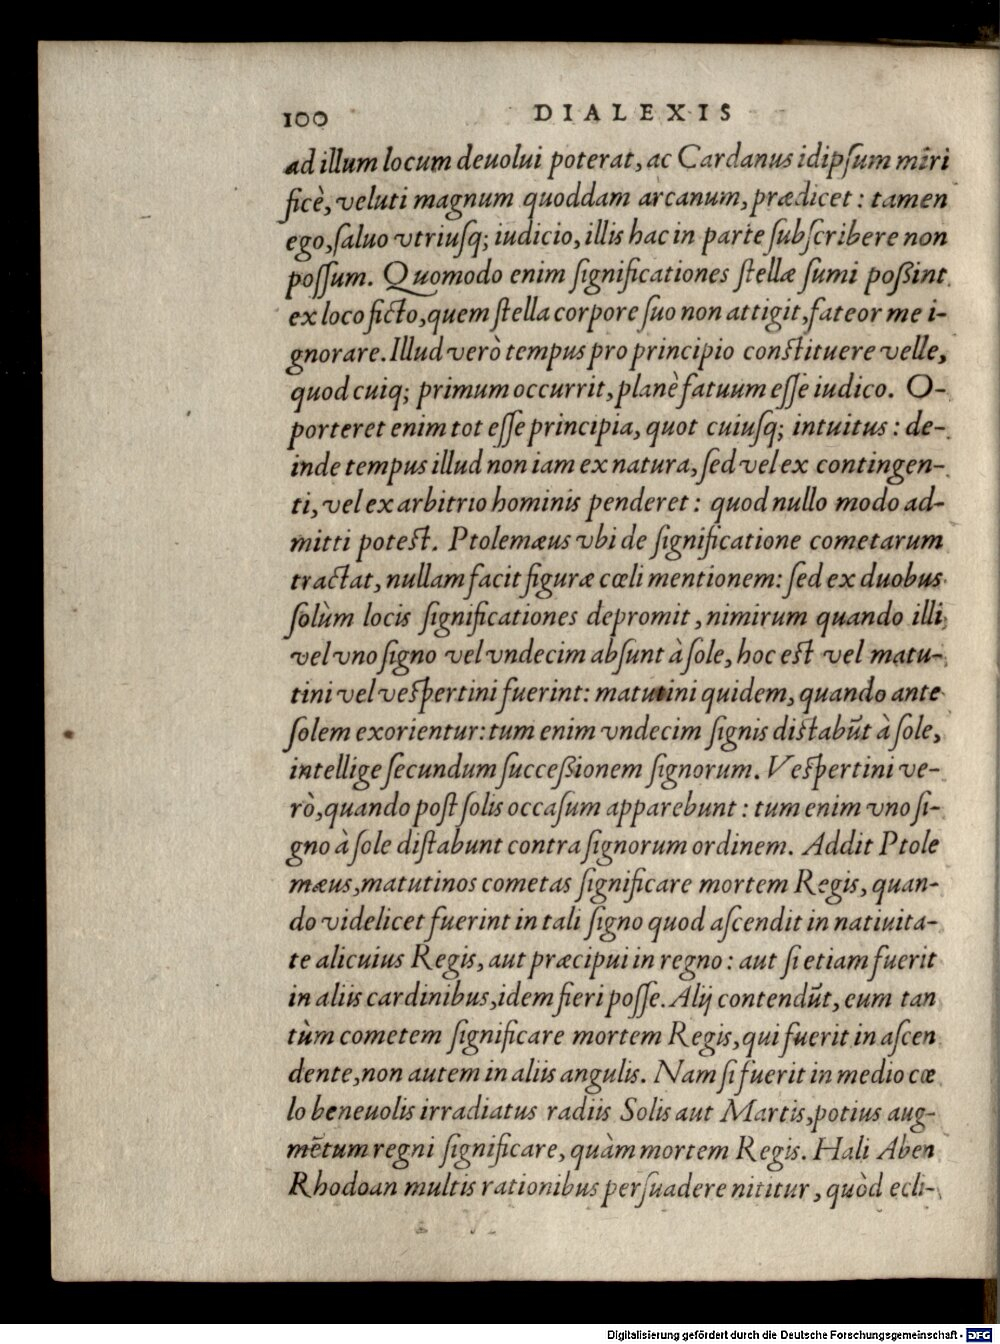 100 DIALEXIS
ad illum locum deuolui poterat, ac Cardanus idipſum miri
ficè, veluti magnum quoddam arcanum, prædicet : tamen
ego, ſaluo vtriuſq; iudicio, illis hac in parte ſubſcribere non
poſſum. Quomodo enim ſignificationes ſtellæ ſumi poßint
ex loco ficto, quem ſtella corpore ſuo non attigit, fateor me i-
gnorare. Illud verò tempus pro principio conſtituere velle,
quod cuiq; primum occurrit, planè fatuum eſſe iudico. O-
porteret enim tot eſſe principia, quot cuiuſq; intuitus : de-
inde tempus illud non iam ex natura, ſed vel ex contingen-
ti, vel ex arbitrio hominis penderet : quod nullo modo ad-
mitti poteſt. Ptolemæus vbi de ſignificatione cometarum
tractat, nullam facit figuræ cœli mentionem: ſed ex duobus
ſolùm locis ſignificationes depromit, nimirum quando illi
vel vno ſigno vel vndecim abſunt à ſole, hoc eſt vel matu-
tini vel veſpertini fuerint: matutini quidem, quando ante
ſolem exorientur: tum enim vndecim ſignis diſtabũt à ſole,
intellige ſecundum ſucceßionem ſignorum. Veſpertini ve-
rò, quando poſt ſolis occaſum apparebunt : tum enim vno ſi-
gno à ſole diſtabunt contra ſignorum ordinem. Addit Ptole
mæus, matutinos cometas ſignificare mortem Regis, quan-
do videlicet fuerint in tali ſigno quod aſcendit in natiuita-
te alicuius Regis, aut præcipui in regno : aut ſi etiam fuerit
in aliis cardinibus, idem fieri poſſe. Alij contendũt, eum tan
tùm cometem ſignificare mortem Regis, qui fuerit in aſcen
dente, non autem in aliis angulis. Nam ſi fuerit in medio cœ
lo beneuolis irradiatus radiis Solis aut Martis, potius aug-
mẽtum regni ſignificare, quàm mortem Regis. Hali Aben
Rhodoan multis rationibus perſuadere nititur, quòd ecli-
Digitalisierung gefördert durch die Deutsche Forschungsgemeinschaft - DFG